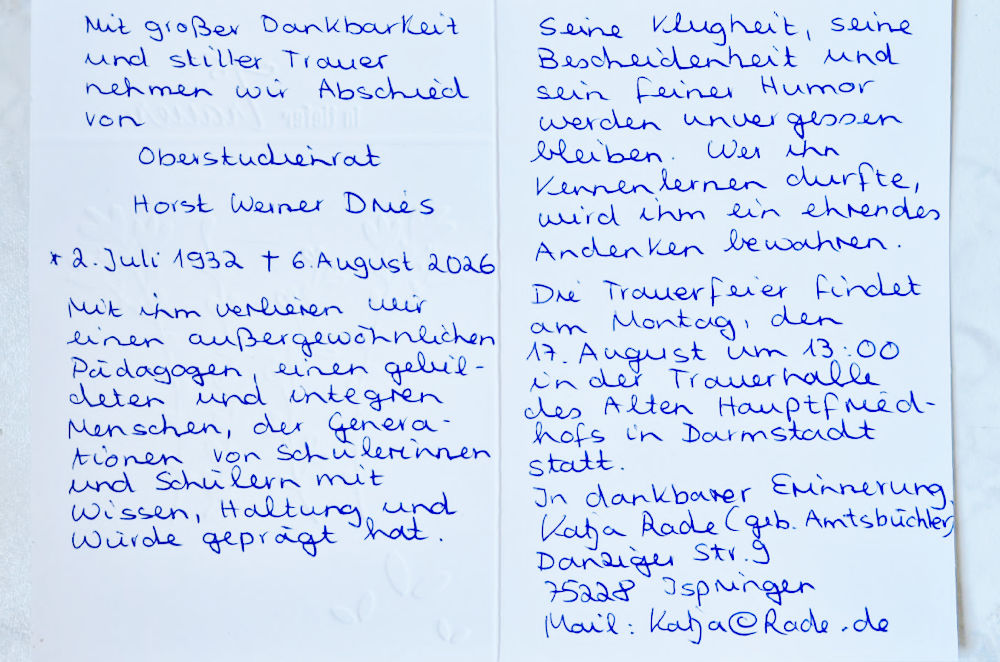 Mit großer Dankbarkeit
und stiller Trauer
nehmen wir Abschied
von
Oberstudienrat
Horst Werner Dries
* 2. Juli 1932 † 6. August 2026
Mit ihm verlieren wir
einen außergewöhnlichen
Pädagogen, einen gebil-
deten und integren
Menschen, der Genera-
tionen von Schülerinnen
und Schülern mit
Wissen, Haltung und
Würde geprägt hat.
Seine Klugheit, seine
Bescheidenheit und
sein feiner Humor
werden unvergessen
bleiben. Wer ihn
kennenlernen durfte,
wird ihm ein ehrendes
Andenken bewahren.
Die Trauerfeier findet
am Montag, den
17. August um 13:00
in der Trauerhalle
des Alten Hauptfried-
hofs in Darmstadt
statt.
In dankbarer Erinnerung,
Katja Rade (geb. Amtsbüchler)
Danziger Str. 9
75228 Ispringen
Mail: Katja@Rade.de